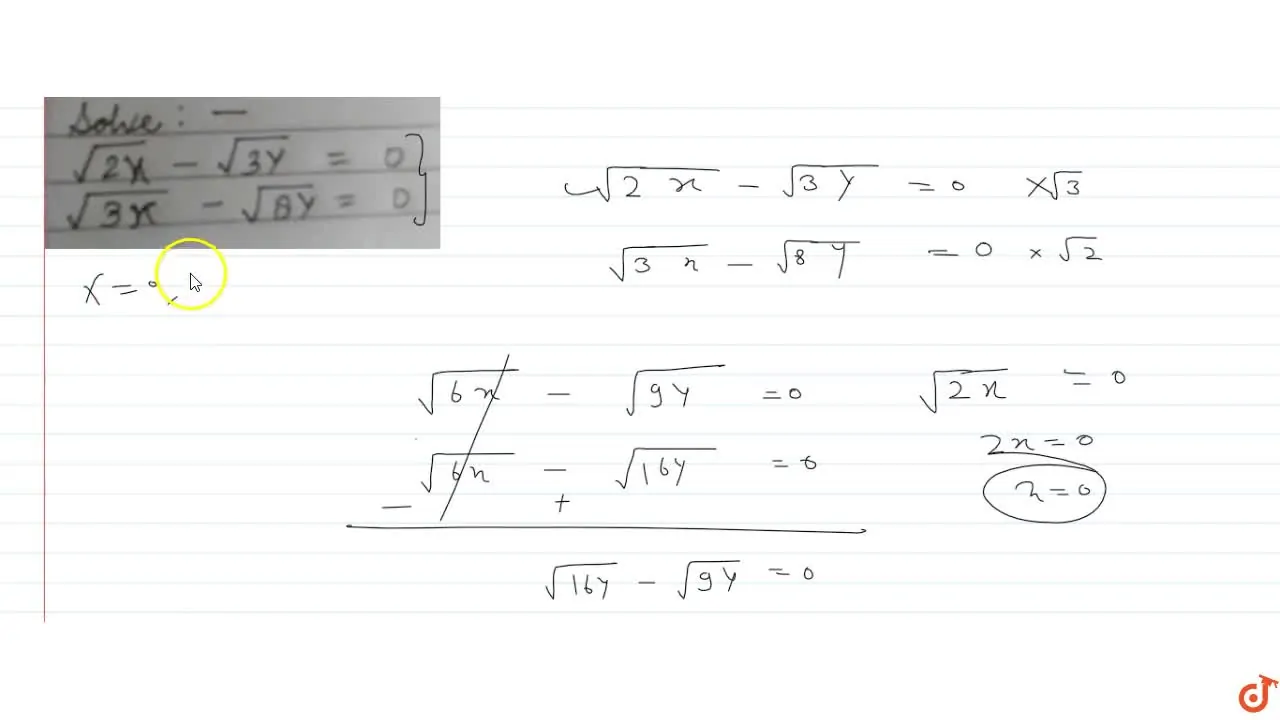 Solve : —
√2x − √3y = 0
√3x − √8y = 0
x = 0,
√2 x − √3 y = 0 ×√3
√3 x − √8 y = 0 ×√2
√6x − √9y = 0
√6x − √16y = 0
− +
√16y − √9y = 0
√2x = 0
2x = 0
x = 0